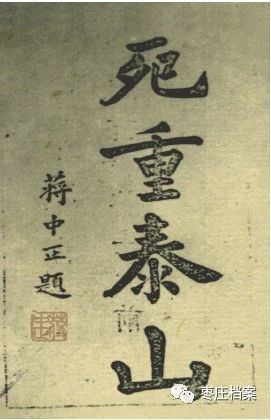 死重泰山
蔣中正題
枣庄档案